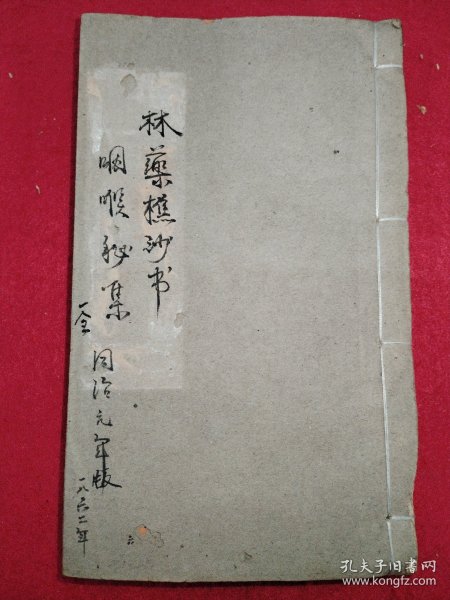 林药樵抄书
咽喉秘集
全
同治元年版
一八六二年
六
孔夫子旧书网
www.kongfz.com